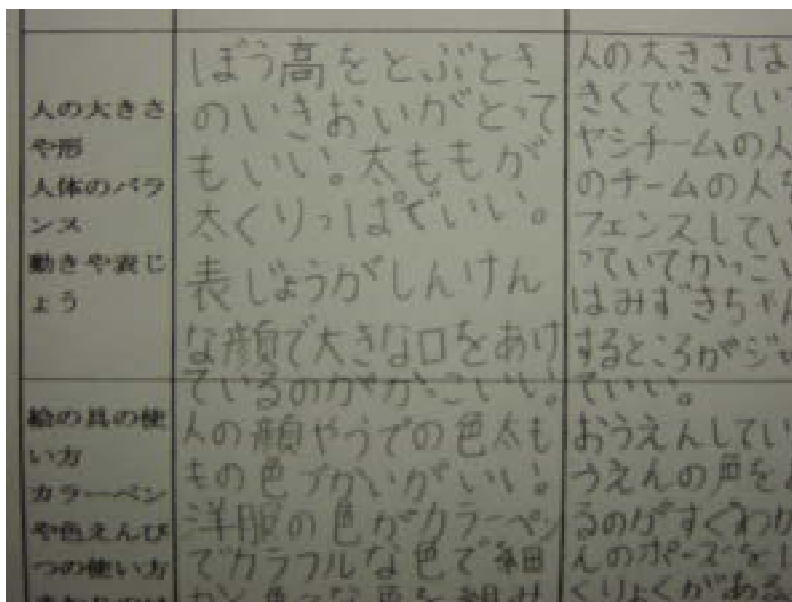 人の大きさ
や形
人体のバラ
ンス
動きや表じ
ょう
ぼう高をとぶとき
のいきおいがとって
もいい。太ももが
太くりっぱでいい。
表じょうがしんけん
な顔で大きな口をあけ
ているのがかっこいい。
人の大きさは
きくできてい
ヤシチームの人
のチームの人
フェンスしてい
っていてかっこい
はみずきちゃん
するところがジ
ていい。
絵の具の使
い方
カラーペン
や色えんぴ
つの使い方
人の顔やうでの色太も
もの色づかいがいい。
洋服の色がカラーペン
でカラフルな色で細
おうえんしてい
うえんの声を
るのがすぐわか
んのポーズを
くりょくがある